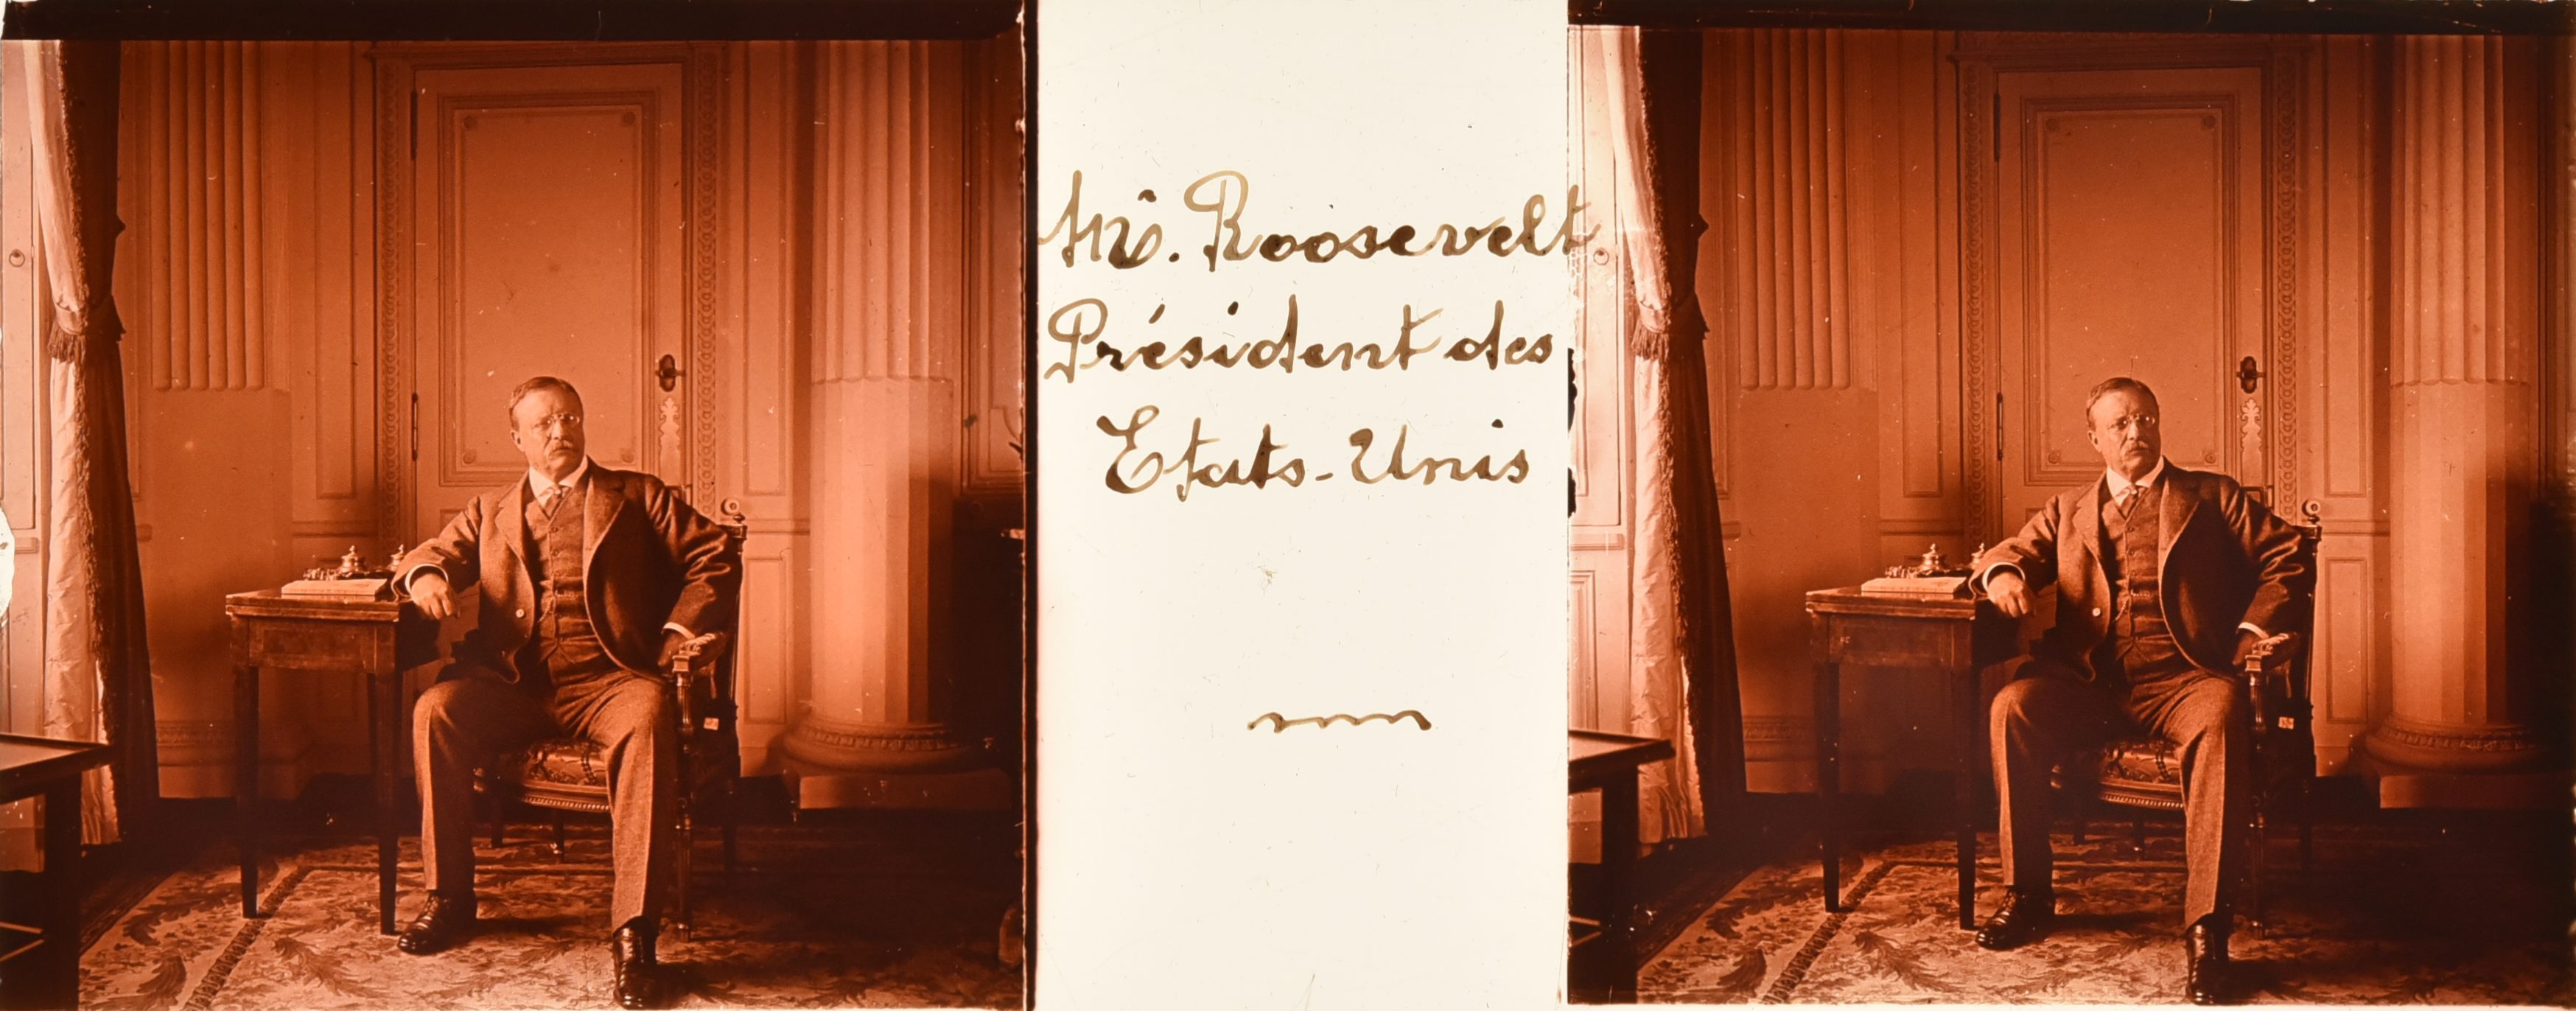 Mr. Roosevelt.
Président des
Etats-Unis